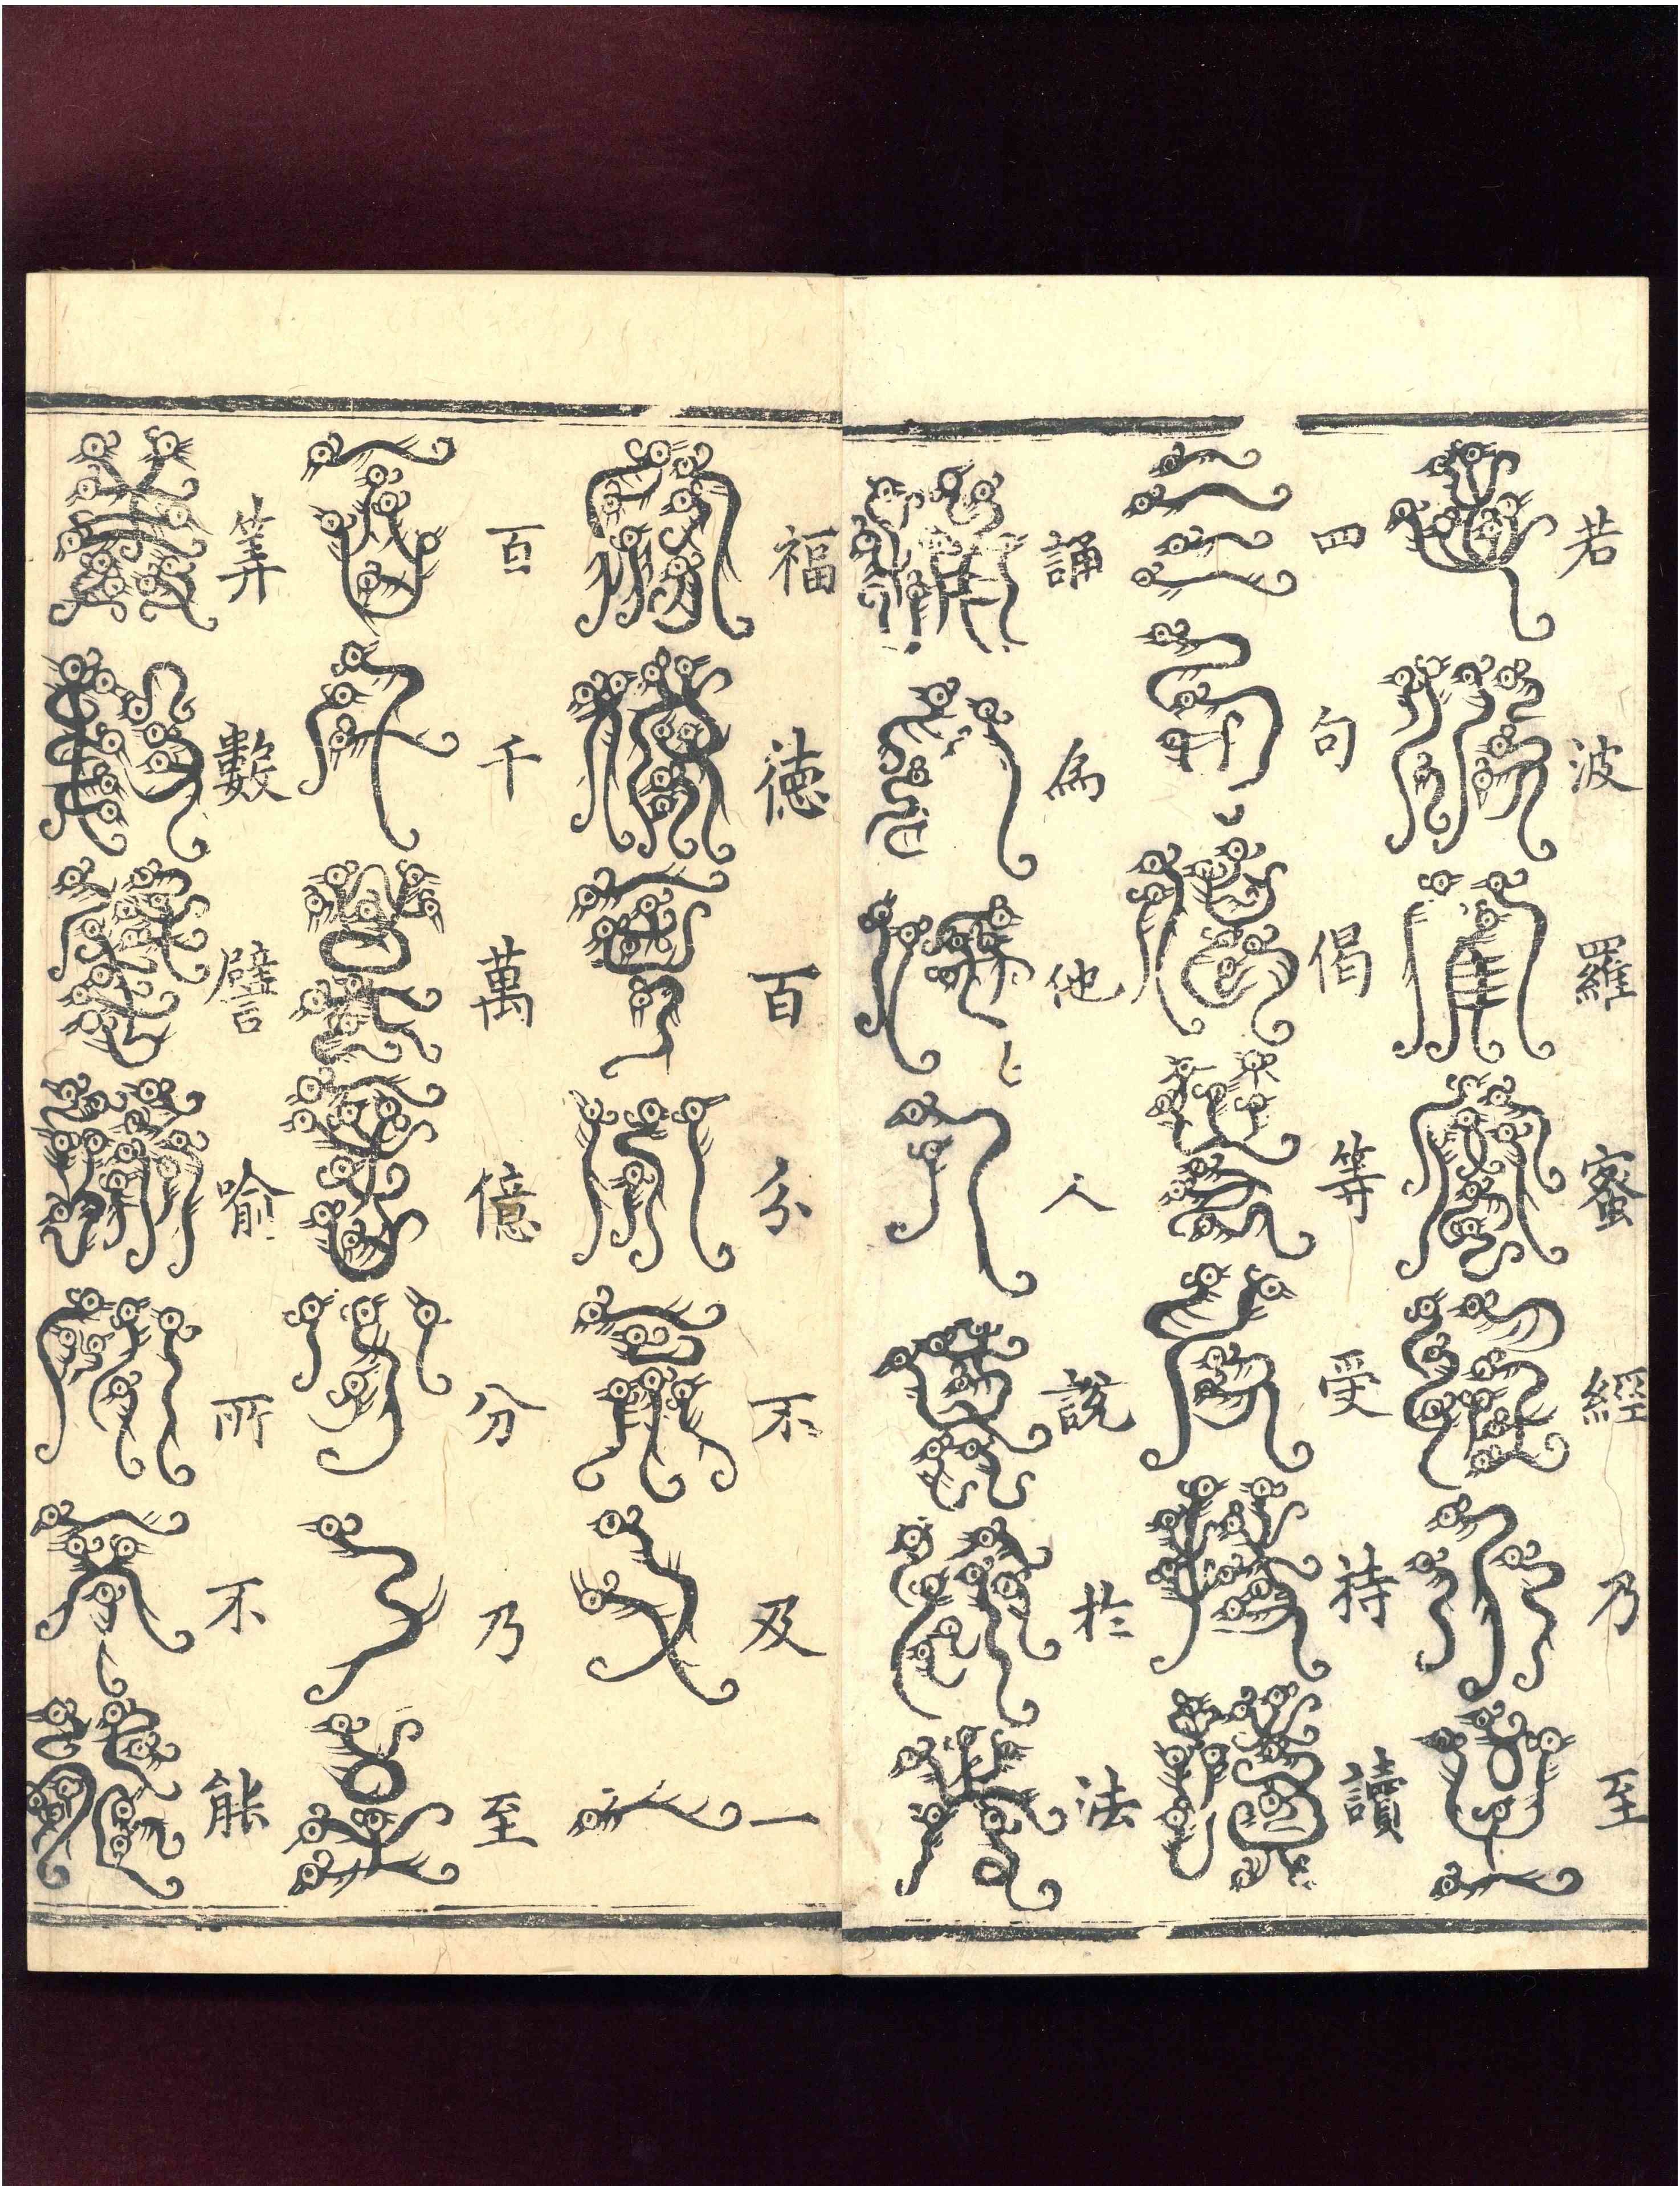 若波羅蜜經乃至
四句偈等受持讀
誦為他人說於法
福德百分不及一
百千萬億分乃至
筭數譬喻所不能